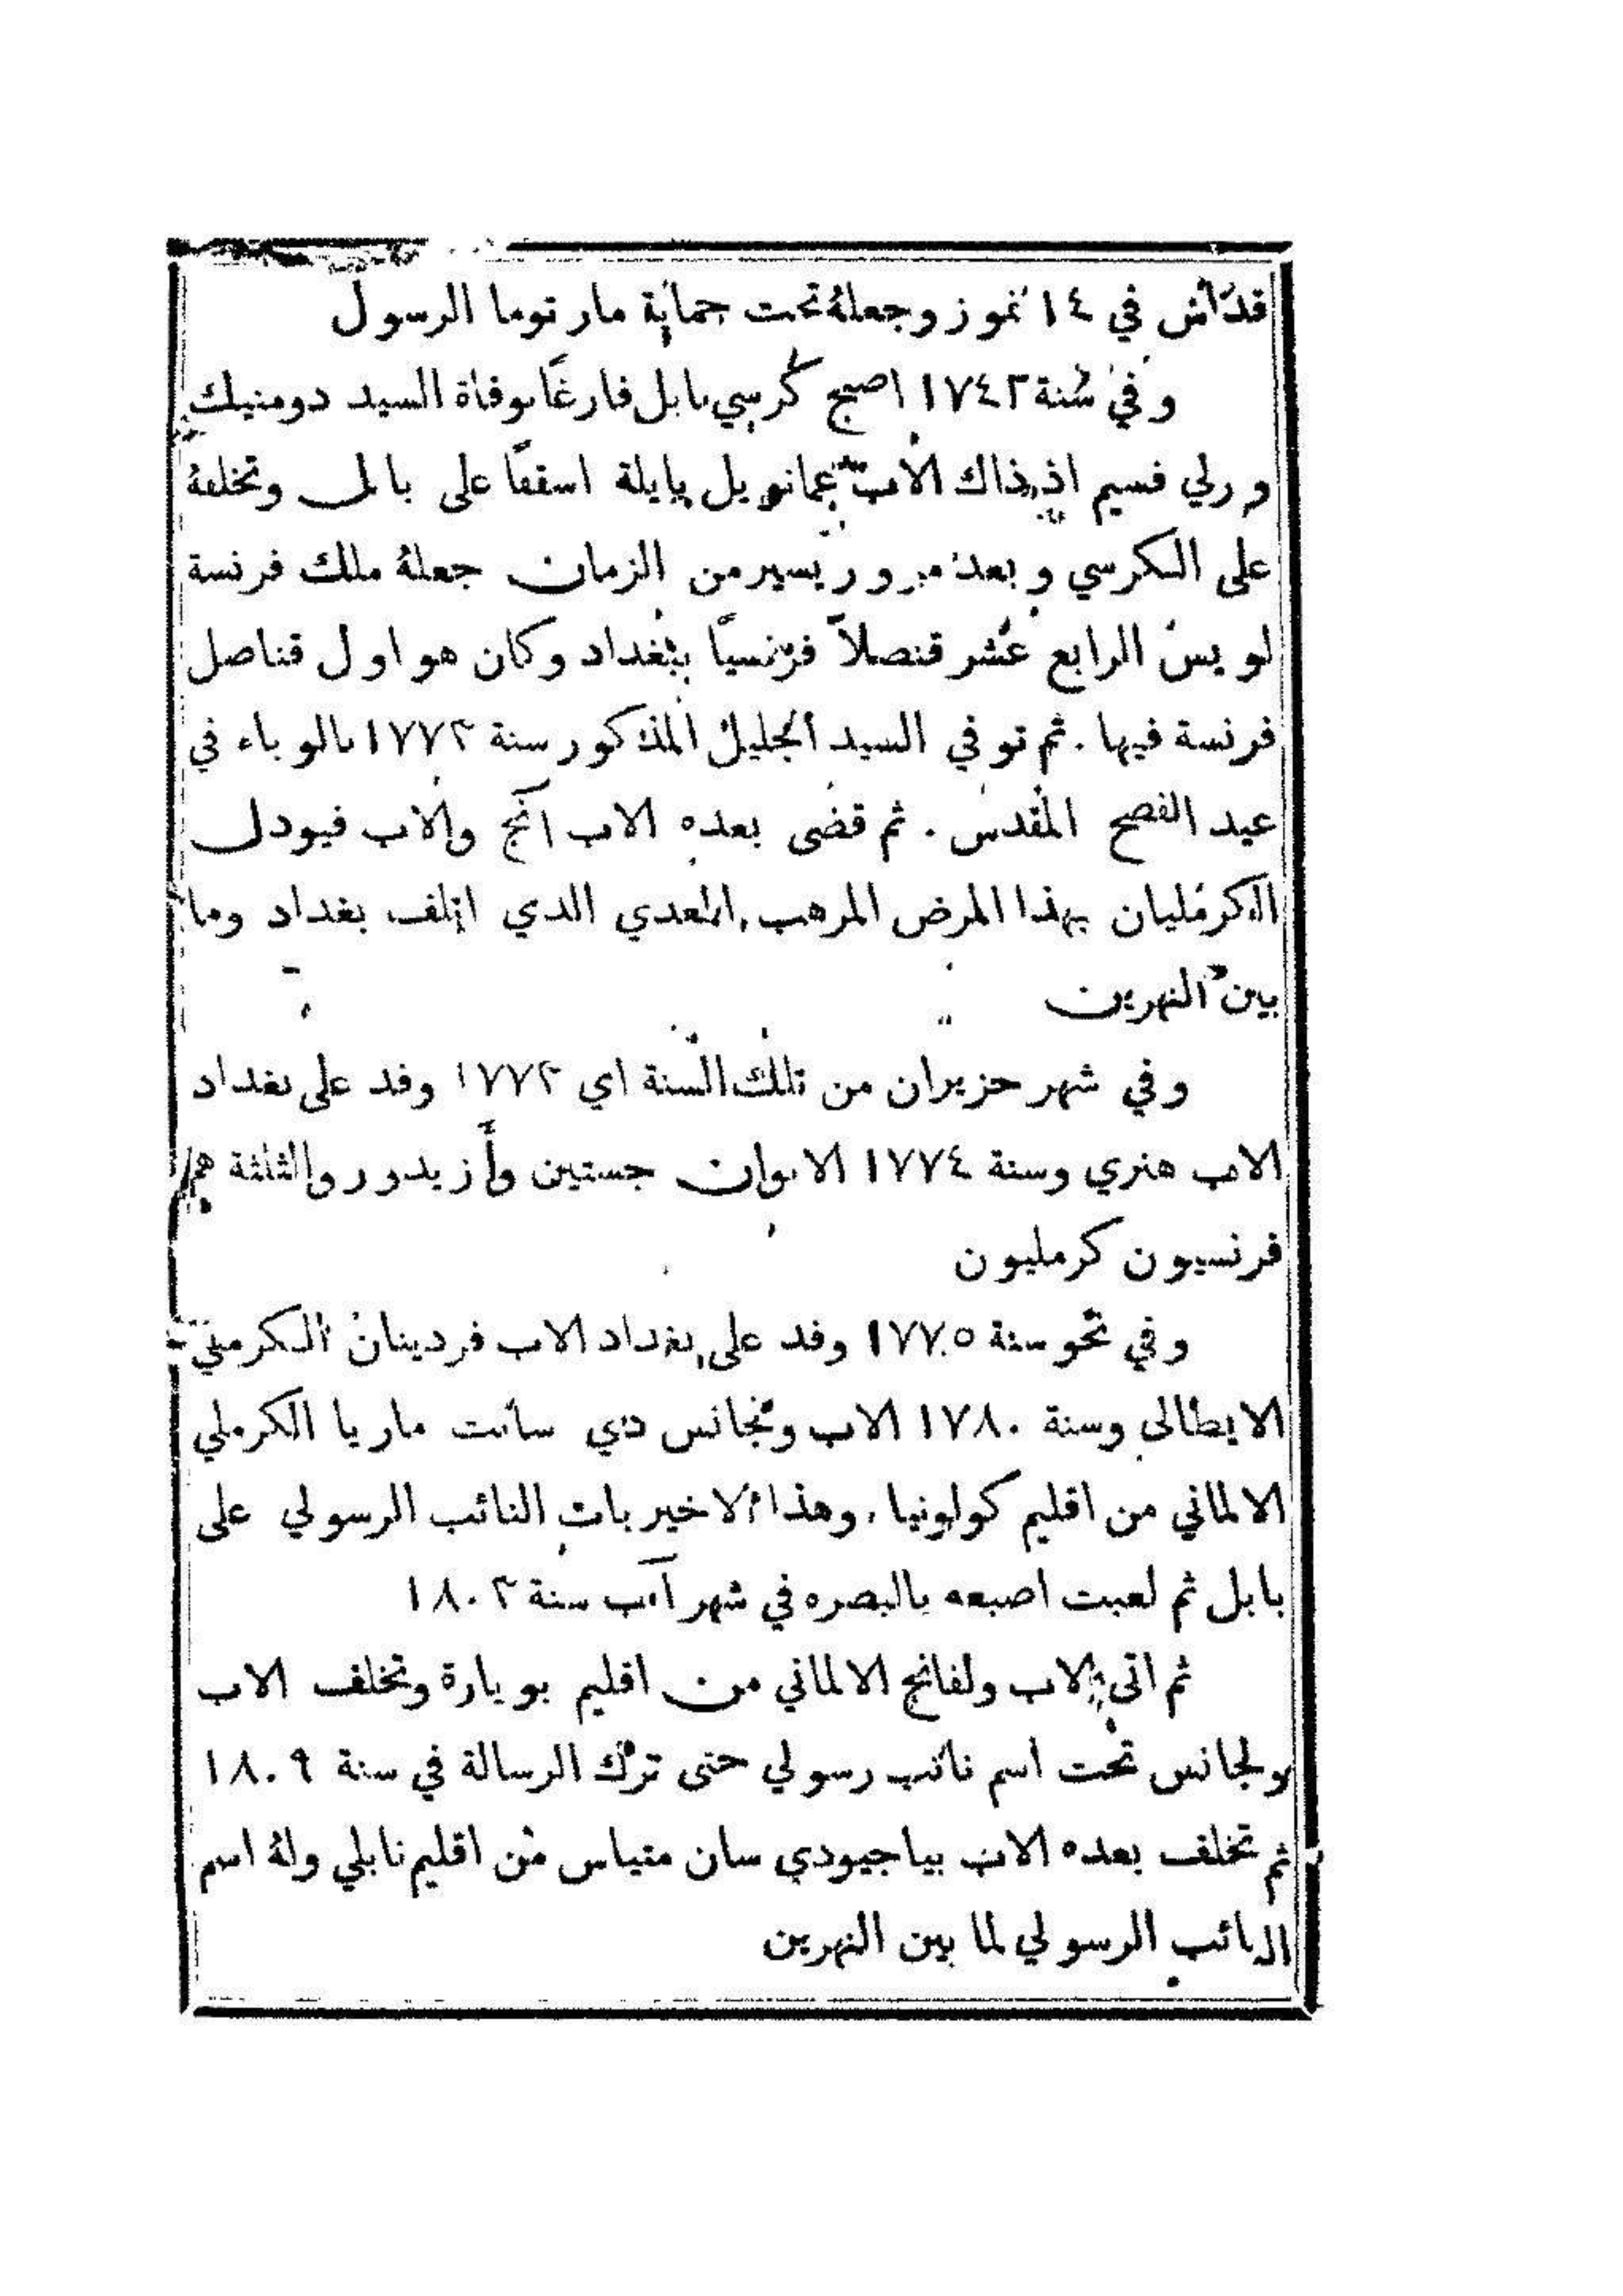 قدّاس في ١٤ تموز وجعلهُ تحت حماية مار توما الرسول
وفي سنة ١٧٤٢ اصبح كرسي بابل فارغًا بوفاة السيد دومنيك
ورلي فسيم اذ ذاك الاب عمانويل بايلة اسقفًا على بابل وتخلفهُ
على الكرسي وبعد مرور يسير من الزمان جعلهُ ملك فرنسة
لويس الرابع عشر قنصلاً فرنسيًا ببغداد وكان هو اول قناصل
فرنسة فيها . ثم توفي السيد الجليل المذكور سنة ١٧٧٣ بالوباء في
عيد الفصح المقدس . ثم قضى بعده الاب آنج والاب فيودل
الكرمليان بهذا المرض المرهب المعدي الدي اتلف بغداد وما
بين النهرين
وفي شهر حزيران من تلك السنة اي ١٧٧٣ وفد على بغداد
الاب هنري وسنة ١٧٧٤ الابوان جستين وأزيدور والثلثة هم
فرنسيون كرمليون
وفي نحو سنة ١٧٧٥ وفد على بغداد الاب فردينان الكرملي
الايطالي وسنة ١٧٨٠ الاب ونجانس دي سانت ماريا الكرملي
الالماني من اقليم كولونيا . وهذا الاخير بات النائب الرسولي على
بابل ثم لعبت اصبعه بالبصره في شهر آب سنة ١٨٠٣
ثم اتى الاب ولفانج الالماني من اقليم بويارة وتخلف الاب
ولجانس تحت اسم نائب رسولي حتى ترك الرسالة في سنة ١٨٠٩
ثم تخلف بعده الاب بياجيودي سان متياس من اقليم نابلي ولهُ اسم
النائب الرسولي لما بين النهرين